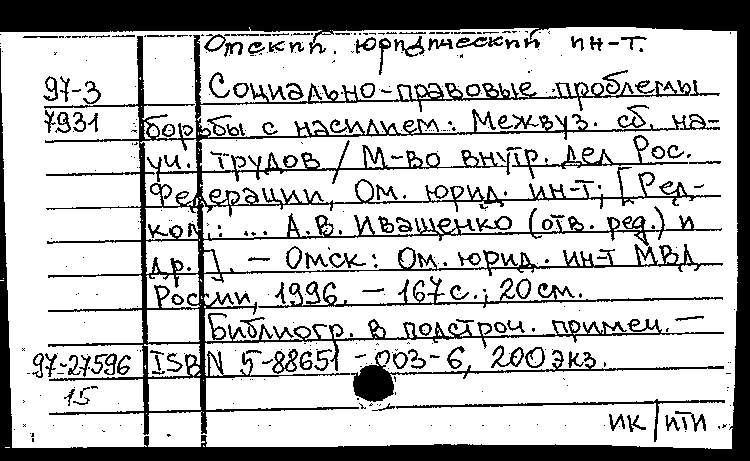 Омский юридический ин-т.
97-3 Социально-правовые проблемы
7931 борьбы с насилием: Межвуз. сб. на-
уч. трудов / М-во внутр. дел Рос.
Федерации, Ом. юрид. ин-т; [Ред-
кол.: ... А.В. Иващенко (отв. ред.) и
др.]. — Омск: Ом. юрид. ин-т МВД
России, 1996. — 167 с.; 20 см.
Библиогр. в подстроч. примеч. —
97-27596 ISBN 5-88651-003-6, 200 экз.
15
ИК/ИТИ